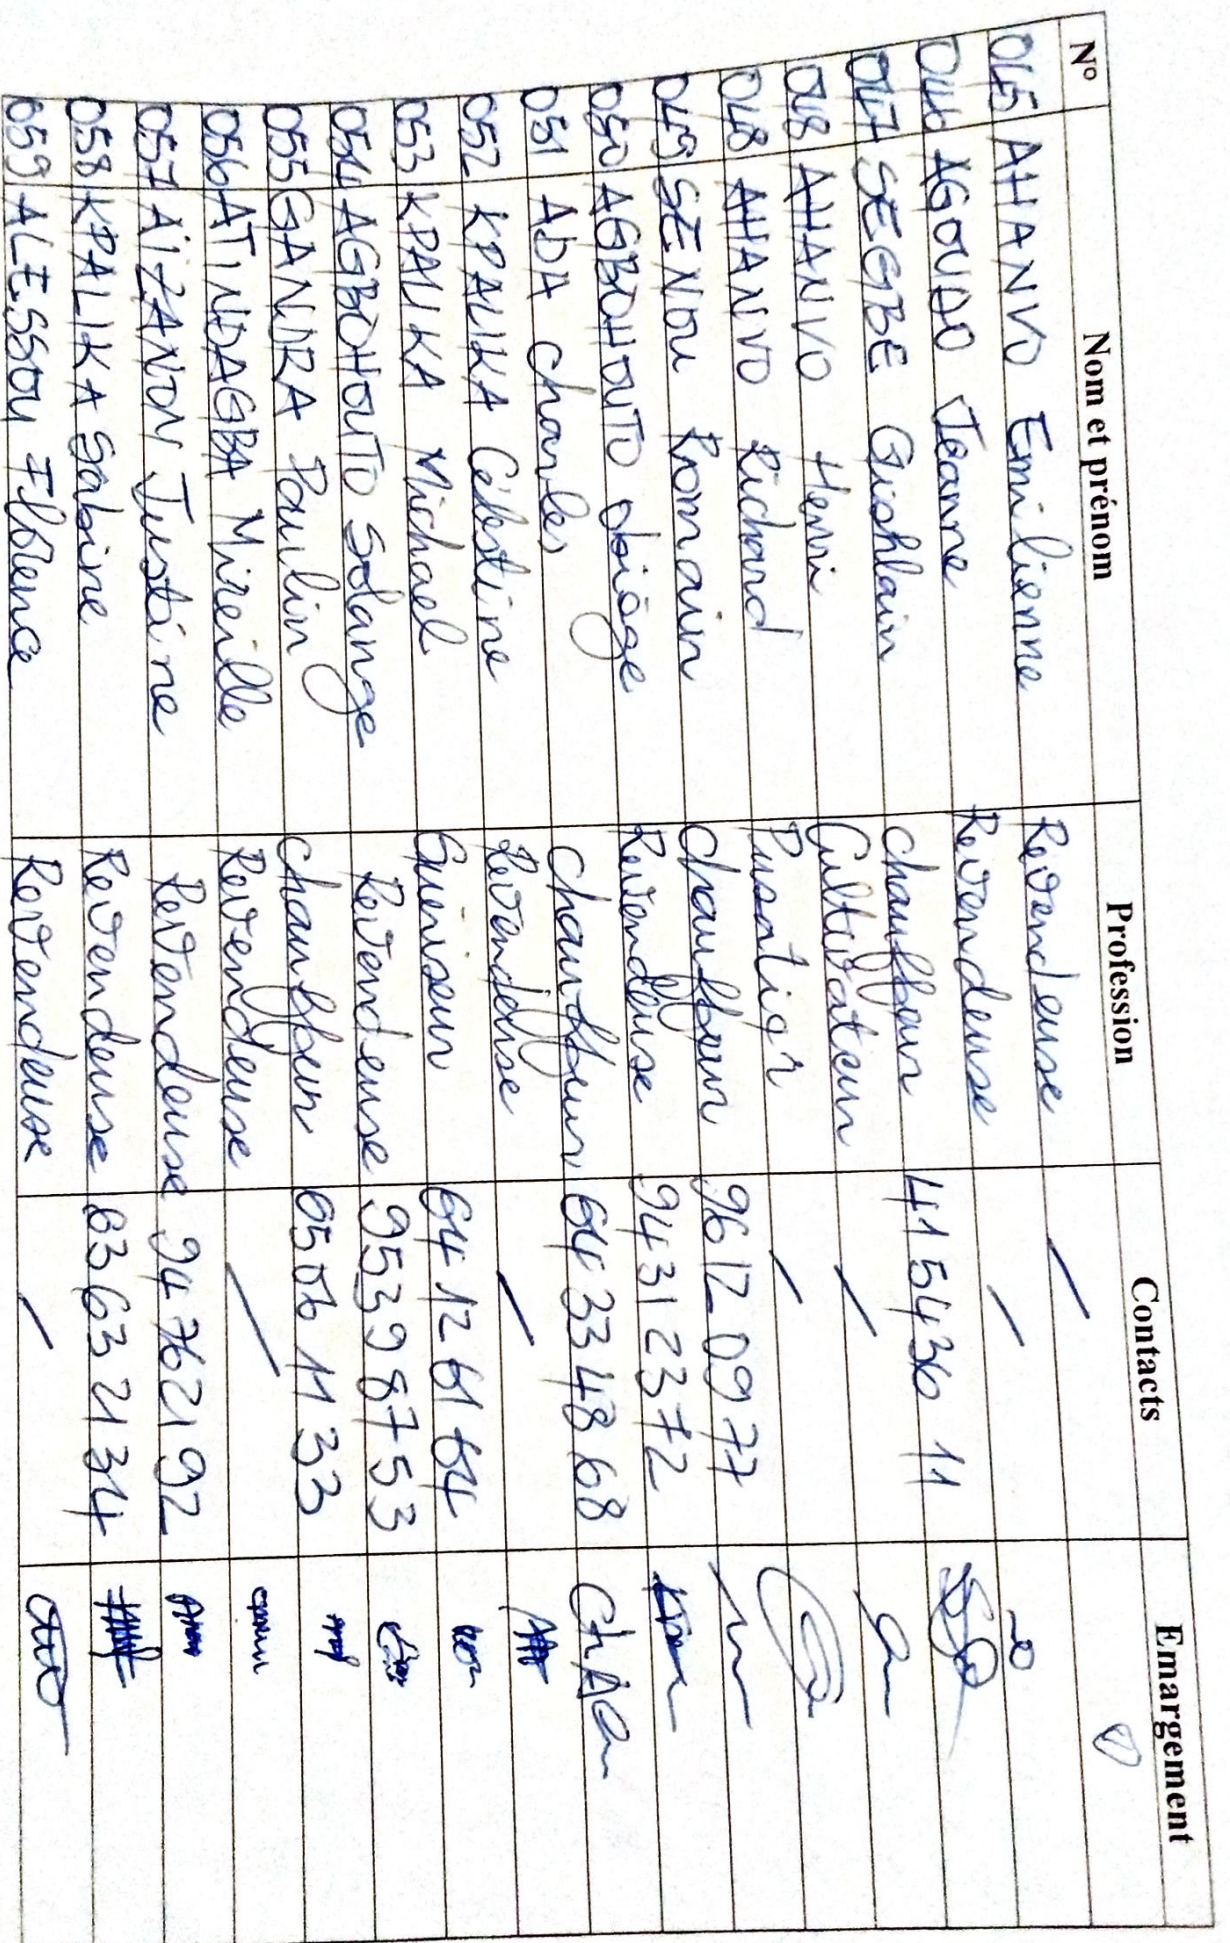 N° Nom et prénom Profession Contacts Emargement
045 AHANVO Emilienne Revendeuse /
046 AGOUDO Jeanne Revendeuse /
047 SEGBE Chauffeur 41 54 36 11
048 AHANVO Henri Cultivateur /
048 AHANVO Richard /
049 SENOU Romain Chauffeur 96 12 09 77
050 AGBOHOUTO Revendeuse 94 31 23 72
051 ADA Charles Chauffeur 64 33 48 68 ChADA
052 KPALIKA Célestine Revendeuse /
053 KPALIKA Michael Gueriseur 64 12 61 64
054 AGBOHOUTO Solange Revendeuse 95 39 87 53
055 GANDRA Paulin Chauffeur 65 06 11 33
056 ATINDAGBA Mireille Revendeuse /
057 AÏZANON Justine Revendeuse 94 76 21 92
058 KPALIKA Sabine Revendeuse 63 63 21 34
059 ALESSOU Florence Revendeuse /